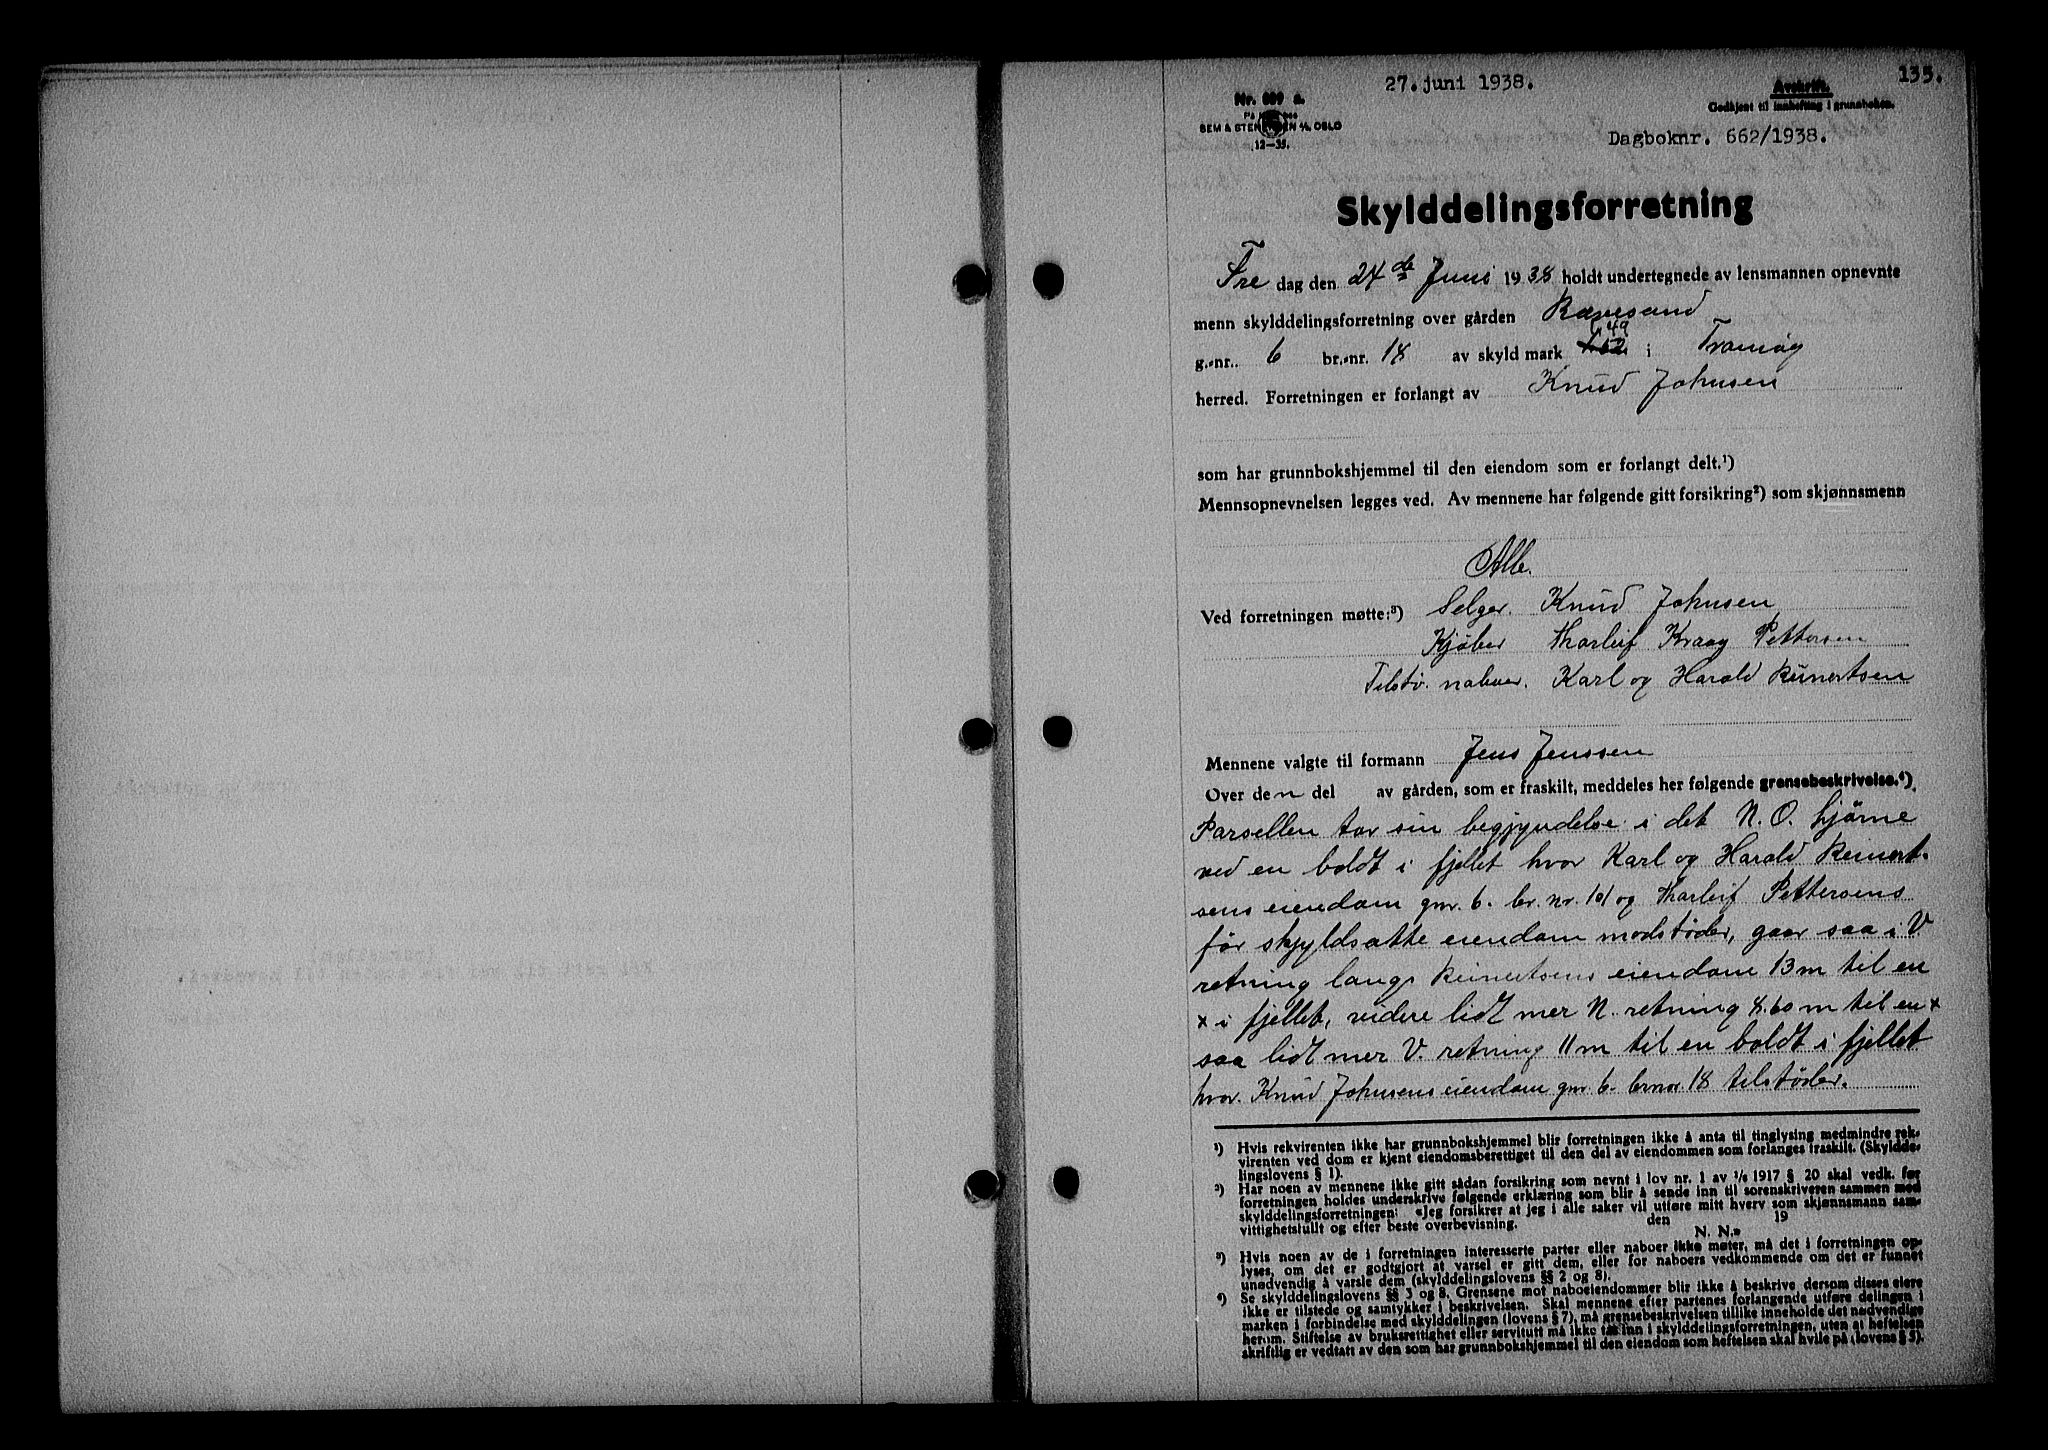 135.
27. juni 1938.
Avskrift.
Nr. 689 a.
Godkjent til innhefting i grunnboken.
SEM & STENERSEN A/S, OSLO
12-35.
Dagboknr. 662/1938.
Skylddelingsforretning
Fre dag den 24de Juni 1938 holdt undertegnede av lensmannen opnevnte
menn skylddelingsforretning over gården Rævesand
g.-nr. 6 br.-nr. 18 av skyld mark 1,49 i Tromøy
herred. Forretningen er forlangt av Knud Johnsen
som har grunnbokshjemmel til den eiendom som er forlangt delt.¹)
Mennsopnevnelsen legges ved. Av mennene har følgende gitt forsikring²) som skjønnsmenn
Alle.
Ved forretningen møtte:³) Selger. Knud Johnsen
Kjøber Tharleif Kraag Pettersen
Tilstø. naboer. Karl og Harald Reinertsen
Mennene valgte til formann Jens Jenssen
Over den del av gården, som er fraskilt, meddeles her følgende grensebeskrivelse.⁴)
Parsellen tar sin begjyndelse i det N.O. hjørne
ved en boldt i fjellet hvor Karl og Harald Reinert-
sens eiendom gnr. 6. br. nr. 101 og Tharleif Pettersens
før skyldsatte eiendom modstøder, gaar saa i V
retning langs Reinertsens eiendom 13 m til en
x i fjellet, videre lidt mer N. retning 8.60 m til en x
saa lidt mer V. retning 11 m til en boldt i fjellet
hvor Knud Johnsens eiendom gnr 6. brnr. 18 tilstøder.
¹) Hvis rekvirenten ikke har grunnbokshjemmel blir forretningen ikke å anta til tinglysing medmindre rek-
virenten ved dom er kjent eiendomsberettiget til den del av eiendommen som forlanges fraskilt. (Skyldde-
lingslovens § 1).
²) Har noen av mennene ikke gitt sådan forsikring som nevnt i lov nr. 1 av 1/6 1917 § 20 skal vedk. før
forretningen holdes underskrive følgende erklæring som blir å sende inn til sorenskriveren sammen med
skylddelingsforretningen: «Jeg forsikrer at jeg i alle saker vil utføre mitt hverv som skjønnsmann sam-
vittighetsfullt og efter beste overbevisning. den 19
N. N.»
³) Hvis noen av de i forretningen interesserte parter eller naboer ikke møter, må det i forretningen op-
lyses, om det er godtgjort at varsel er gitt dem, eller for naboers vedkommende om det er funnet
unødvendig å varsle dem (skylddelingslovens §§ 2 og 8).
⁴) Se skylddelingslovens §§ 3 og 8. Grensene mot naboeiendommer blir ikke å beskrive dersom disses eiere
ikke er tilstede og samtykker i beskrivelsen. Skal mennene efter partenes forlangende utføre delingen i
marken i forbindelse med skylddelingen (lovens § 7), må grensebeskrivelsen tillike inneholde det nødvendige
herom. Stiftelse av bruksrettighet eller servitutt må ikke tas inn i skylddelingsforretningen, uten at heftelsen
skriftlig er vedtatt av den som har grunnbokshjemmel til den eiendom som heftelsen skal hvile på (lovens § 5).